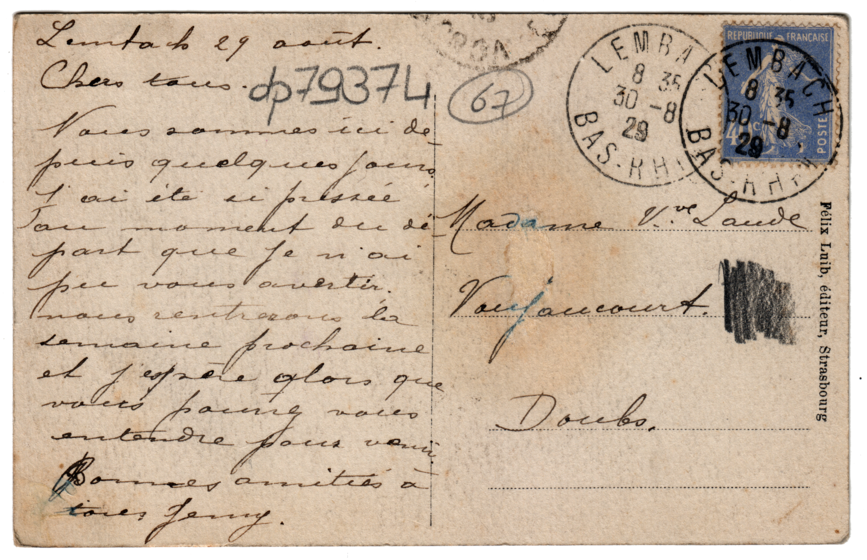 Lembach 29 août.
Chers tous.
Nous sommes ici de
puis quelques jours,
j'ai été si pressée
au moment du dé
part que je n'ai
pu vous avertir.
nous rentrerons la
semaine prochaine
et j'espère alors que
vous pourrez vous
entendre pour venir.
Bonnes amitiés à
tous Jenny.
dp79374
67
LEMBACH
8 35
30 -8
29
BAS-RHIN
REPUBLIQUE FRANÇAISE
POSTES
LEMBACH
8 35
30 -8
29
BAS-RHIN
Madame Vve Laude
Voujaucourt.
Doubs.
Félix Luib, éditeur, Strasbourg